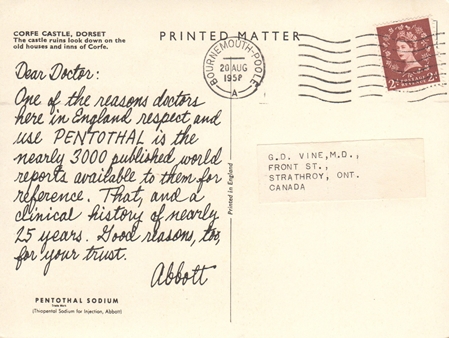 CORFE CASTLE, DORSET
The castle ruins look down on the
old houses and inns of Corfe.
PRINTED MATTER
BOURNEMOUTH-POOLE
20 AUG
A
Dear Doctor:
One of the reasons doctors
here in England respect and
use PENTOTHAL is the
nearly 3000 published world
reports available to them for
reference. That, and a
clinical history of nearly
25 years. Good reasons, too,
for your trust.
Abbott
PENTOTHAL SODIUM
Trade Mark
(Thiopental Sodium for Injection, Abbott)
Printed in England
G.D. VINE,M.D.,
FRONT ST.,
STRATHROY, ONT.
CANADA